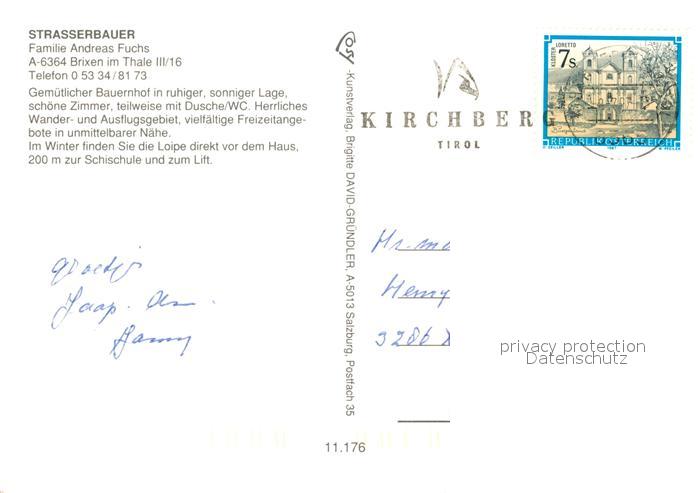 STRASSERBAUER
Familie Andreas Fuchs
A-6364 Brixen im Thale III/16
Telefon 0 53 34 / 81 73
Gemütlicher Bauernhof in ruhiger, sonniger Lage,
schöne Zimmer, teilweise mit Dusche/WC. Herrliches
Wander- und Ausflugsgebiet, vielfältige Freizeitange-
bote in unmittelbarer Nähe.
Im Winter finden Sie die Loipe direkt vor dem Haus,
200 m zur Schischule und zum Lift.
groetjes
Jaap
-Kunstverlag, Brigitte DAVID-GRÜNDLER, A-5013 Salzburg, Postfach 35
11.176
KIRCHBERG
TIROL
KLOSTER LORETTO
7s
Burgenland
REPUBLIK ÖSTERREICH
1987
Henny
privacy protection
Datenschutz